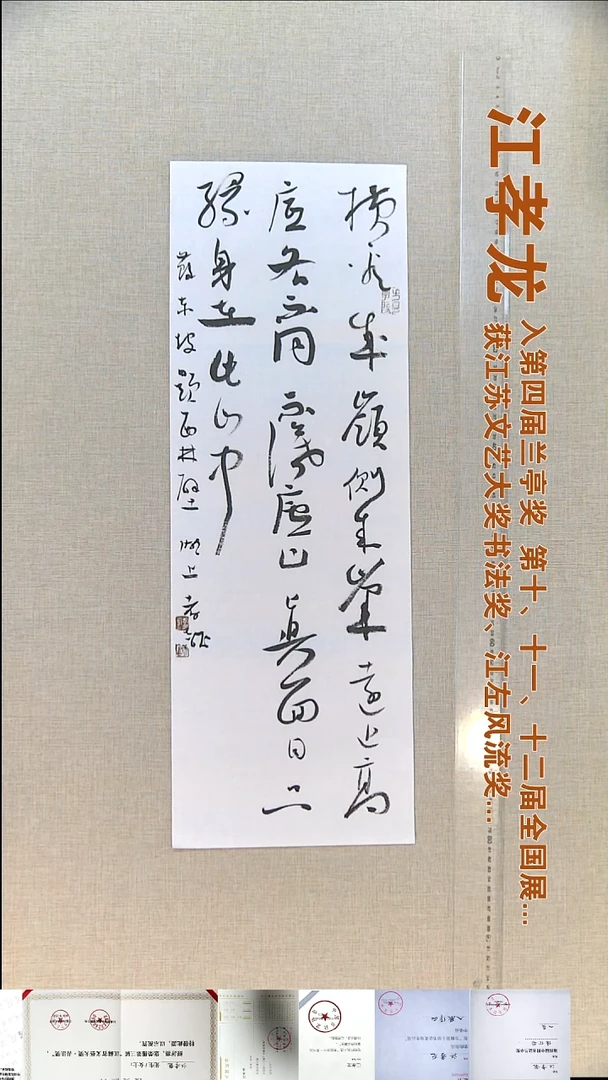 江孝龙
入第四届兰亭奖 第十、十一、十二届全国展...
获江苏文艺大奖书法奖、江左风流奖...
横看成嶺側成峯遠近高
低各不同不識廬山真面目只
緣身在此山中
蘇東坡題西林壁 湖上孝龍